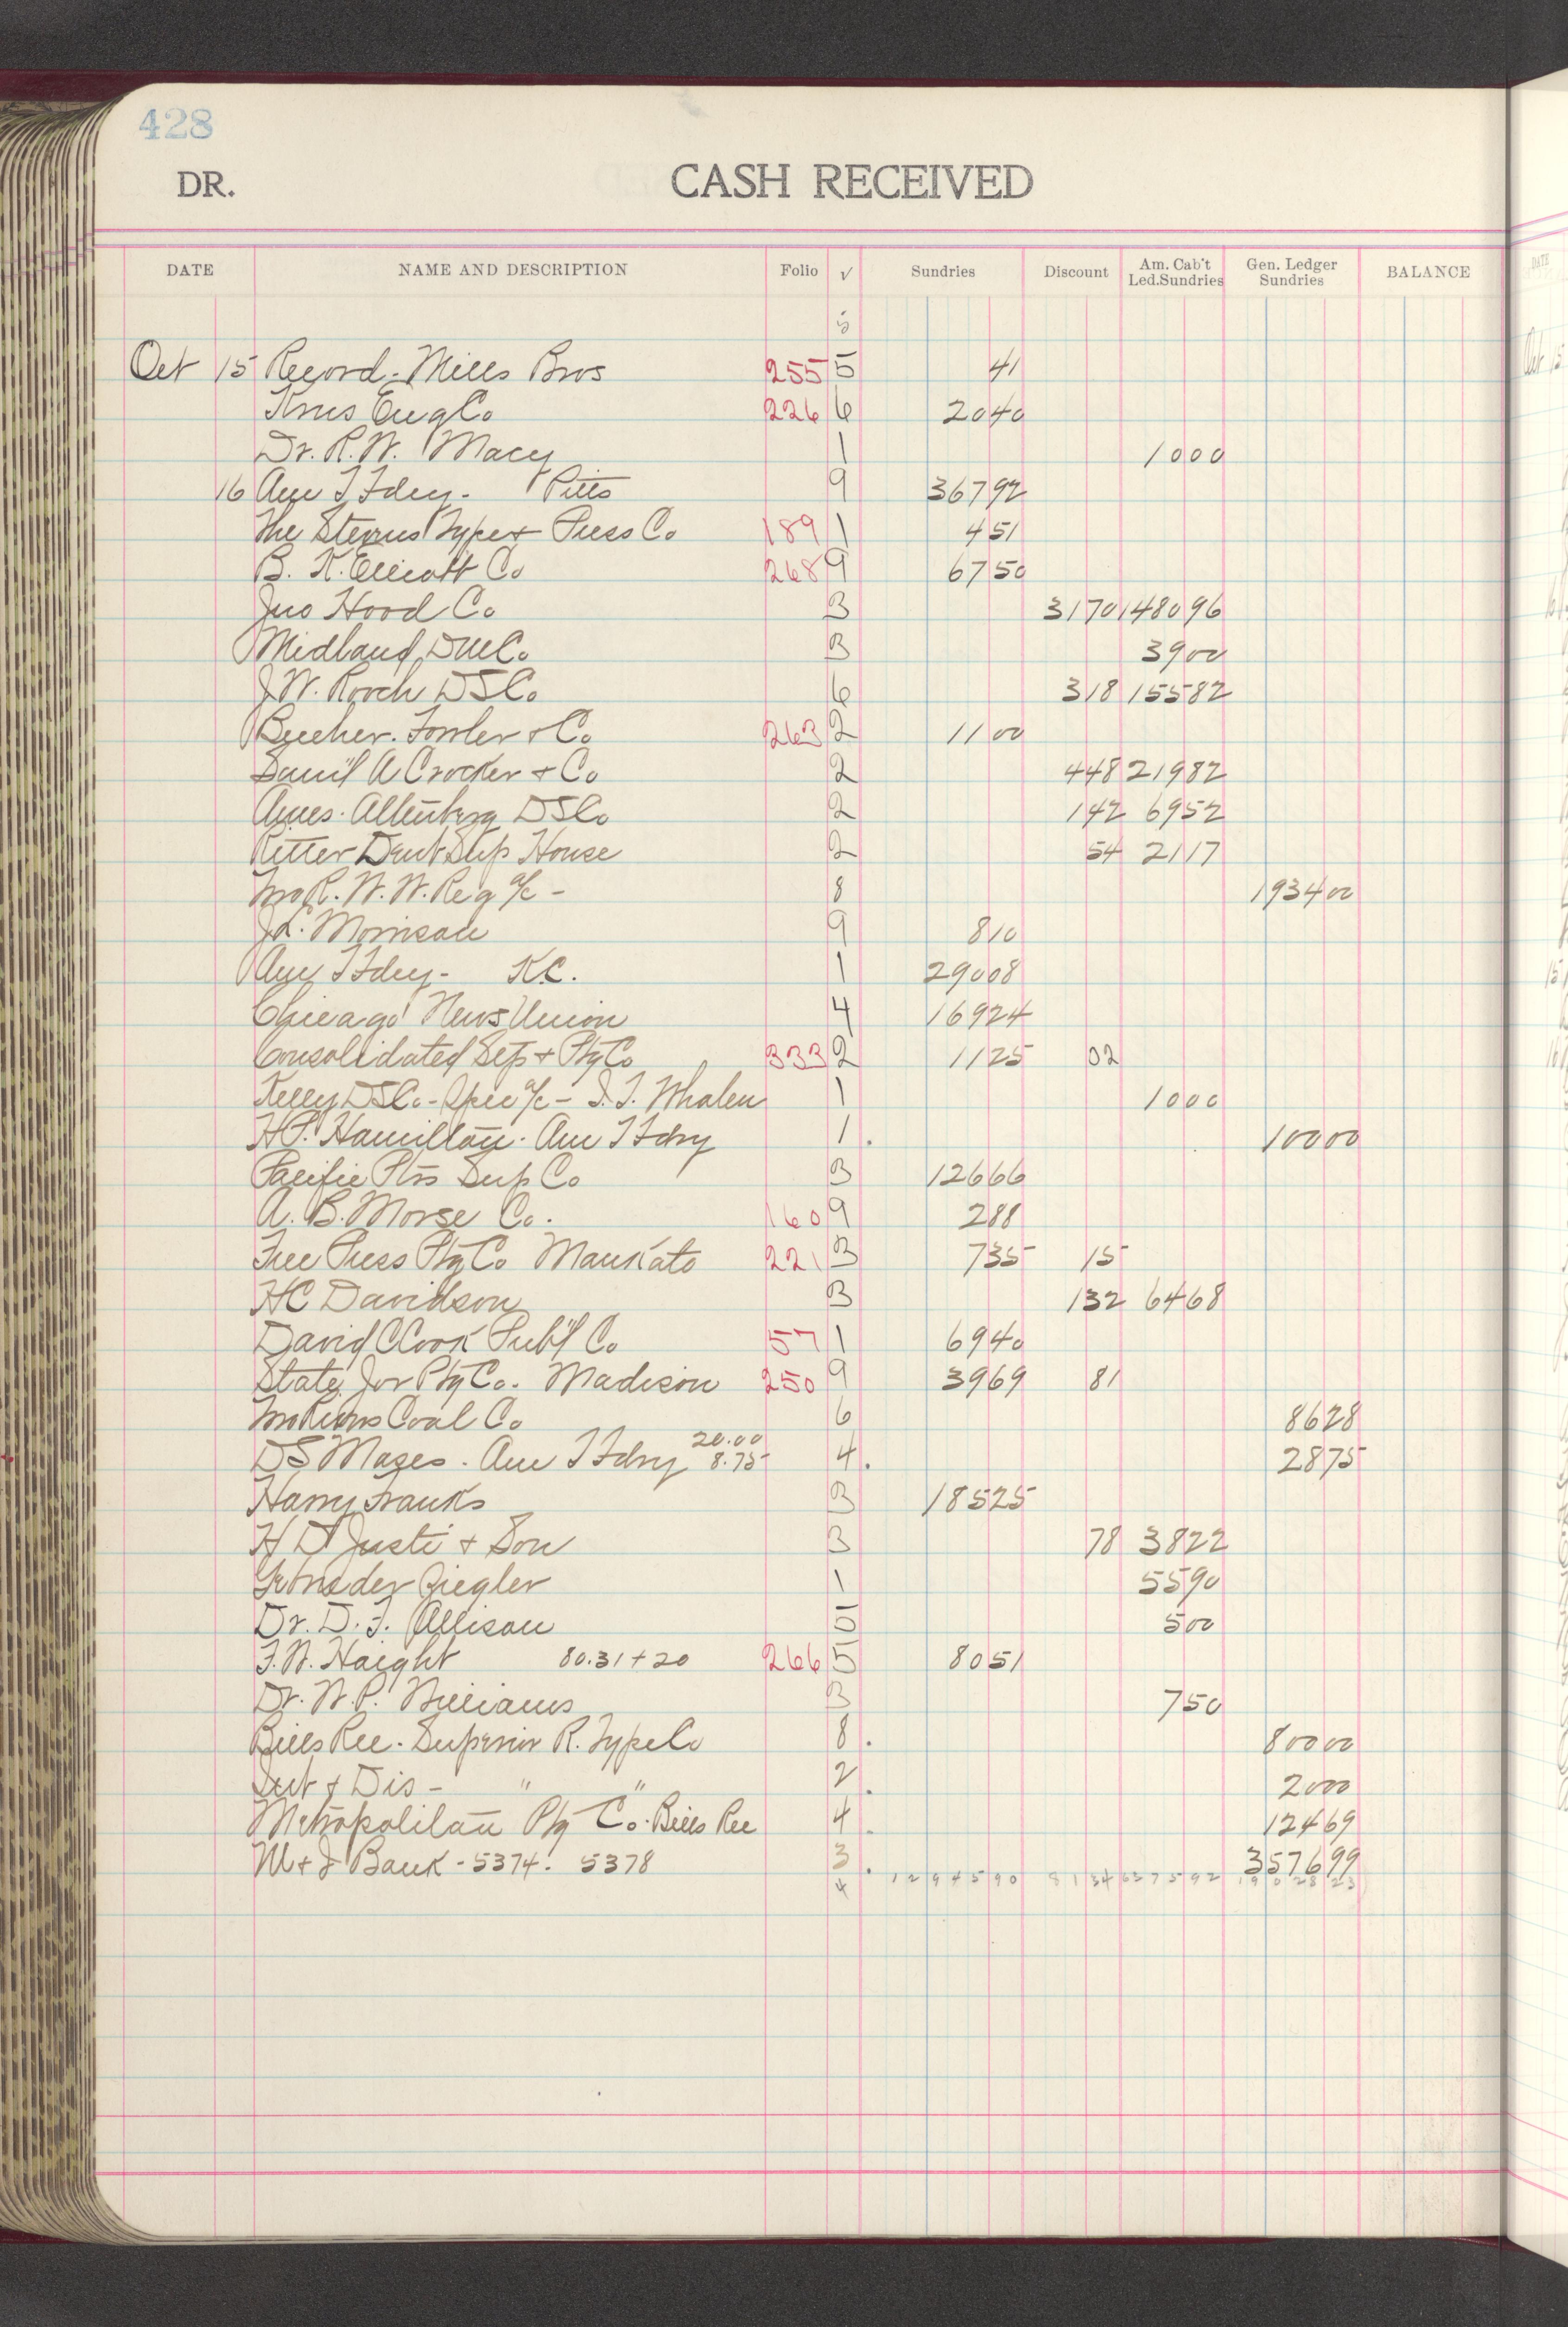 428
DR. CASH RECEIVED
DATE NAME AND DESCRIPTION Folio √ Sundries Discount Am. Cab't Led.Sundries Gen. Ledger Sundries BALANCE
5
Oct 15 Record. Mills Bros 255 5 41
Eng Co 226 6 20 40
Dr. R. W. Macy 1 10 00
16 Am T Fdry - Pitts 9 367 92
The Stevens Type & Press Co 189 1 4 51
B. K. Elliott Co 268 9 67 50
Jno Hood Co 3 31 70 1480 96
Midland DMCo 3 39 00
J. W. Roach DSCo 6 3 18 155 82
Beecher. Fowler & Co 263 2 11 00
Sam'l A Crocker & Co 2 4 48 219 82
Ames. Allenberg DSCo 2 1 42 69 52
Ritter Dent Sup House 2 54 21 17
R. W. W. Reg a/c - 8 1934 00
J L. Morrison 9 8 10
Am T Fdry - K.C. 1 290 08
Chicago News Union 4 169 24
Consolidated Sep & Ptg Co 333 2 11 25 02
Kelly DSCo - Spec a/c - Whalen 1 10 00
H P. Hamilton. Am T Fdry 1 . 100 00
Pacific Ptrs Sup Co 3 126 66
A. B. Morse Co. 160 9 2 88
Free Press Ptg Co Mankato 221 3 7 35 15
HC Davidson 3 1 32 64 68
David C Cook Pub'l Co 57 1 69 40
State Jor Ptg Co. Madison 250 9 39 69 81
Coal Co 6 86 28
20.00
DS Mages. Am T Fdry 8.75 4 . 28 75
Harry Franks 3 185 25
H D Justi & Son 3 78 38 22
Ziegler 1 55 90
Dr. D. F. Allison 01 5 00
F. W. Haight 80.31 + 20 266 5 80 51
Dr. W. P. Williams 3 7 50
Bills Rec. Superior R. Type Co 8 . 800 00
Int & Dis - " " 2 . 20 00
Metropolitan Ptg Co. Bills Rec 4 . 124 69
M & J Bank - 5374. 5378 3 . 3576 99
4 1 2 9 4 5 9 0